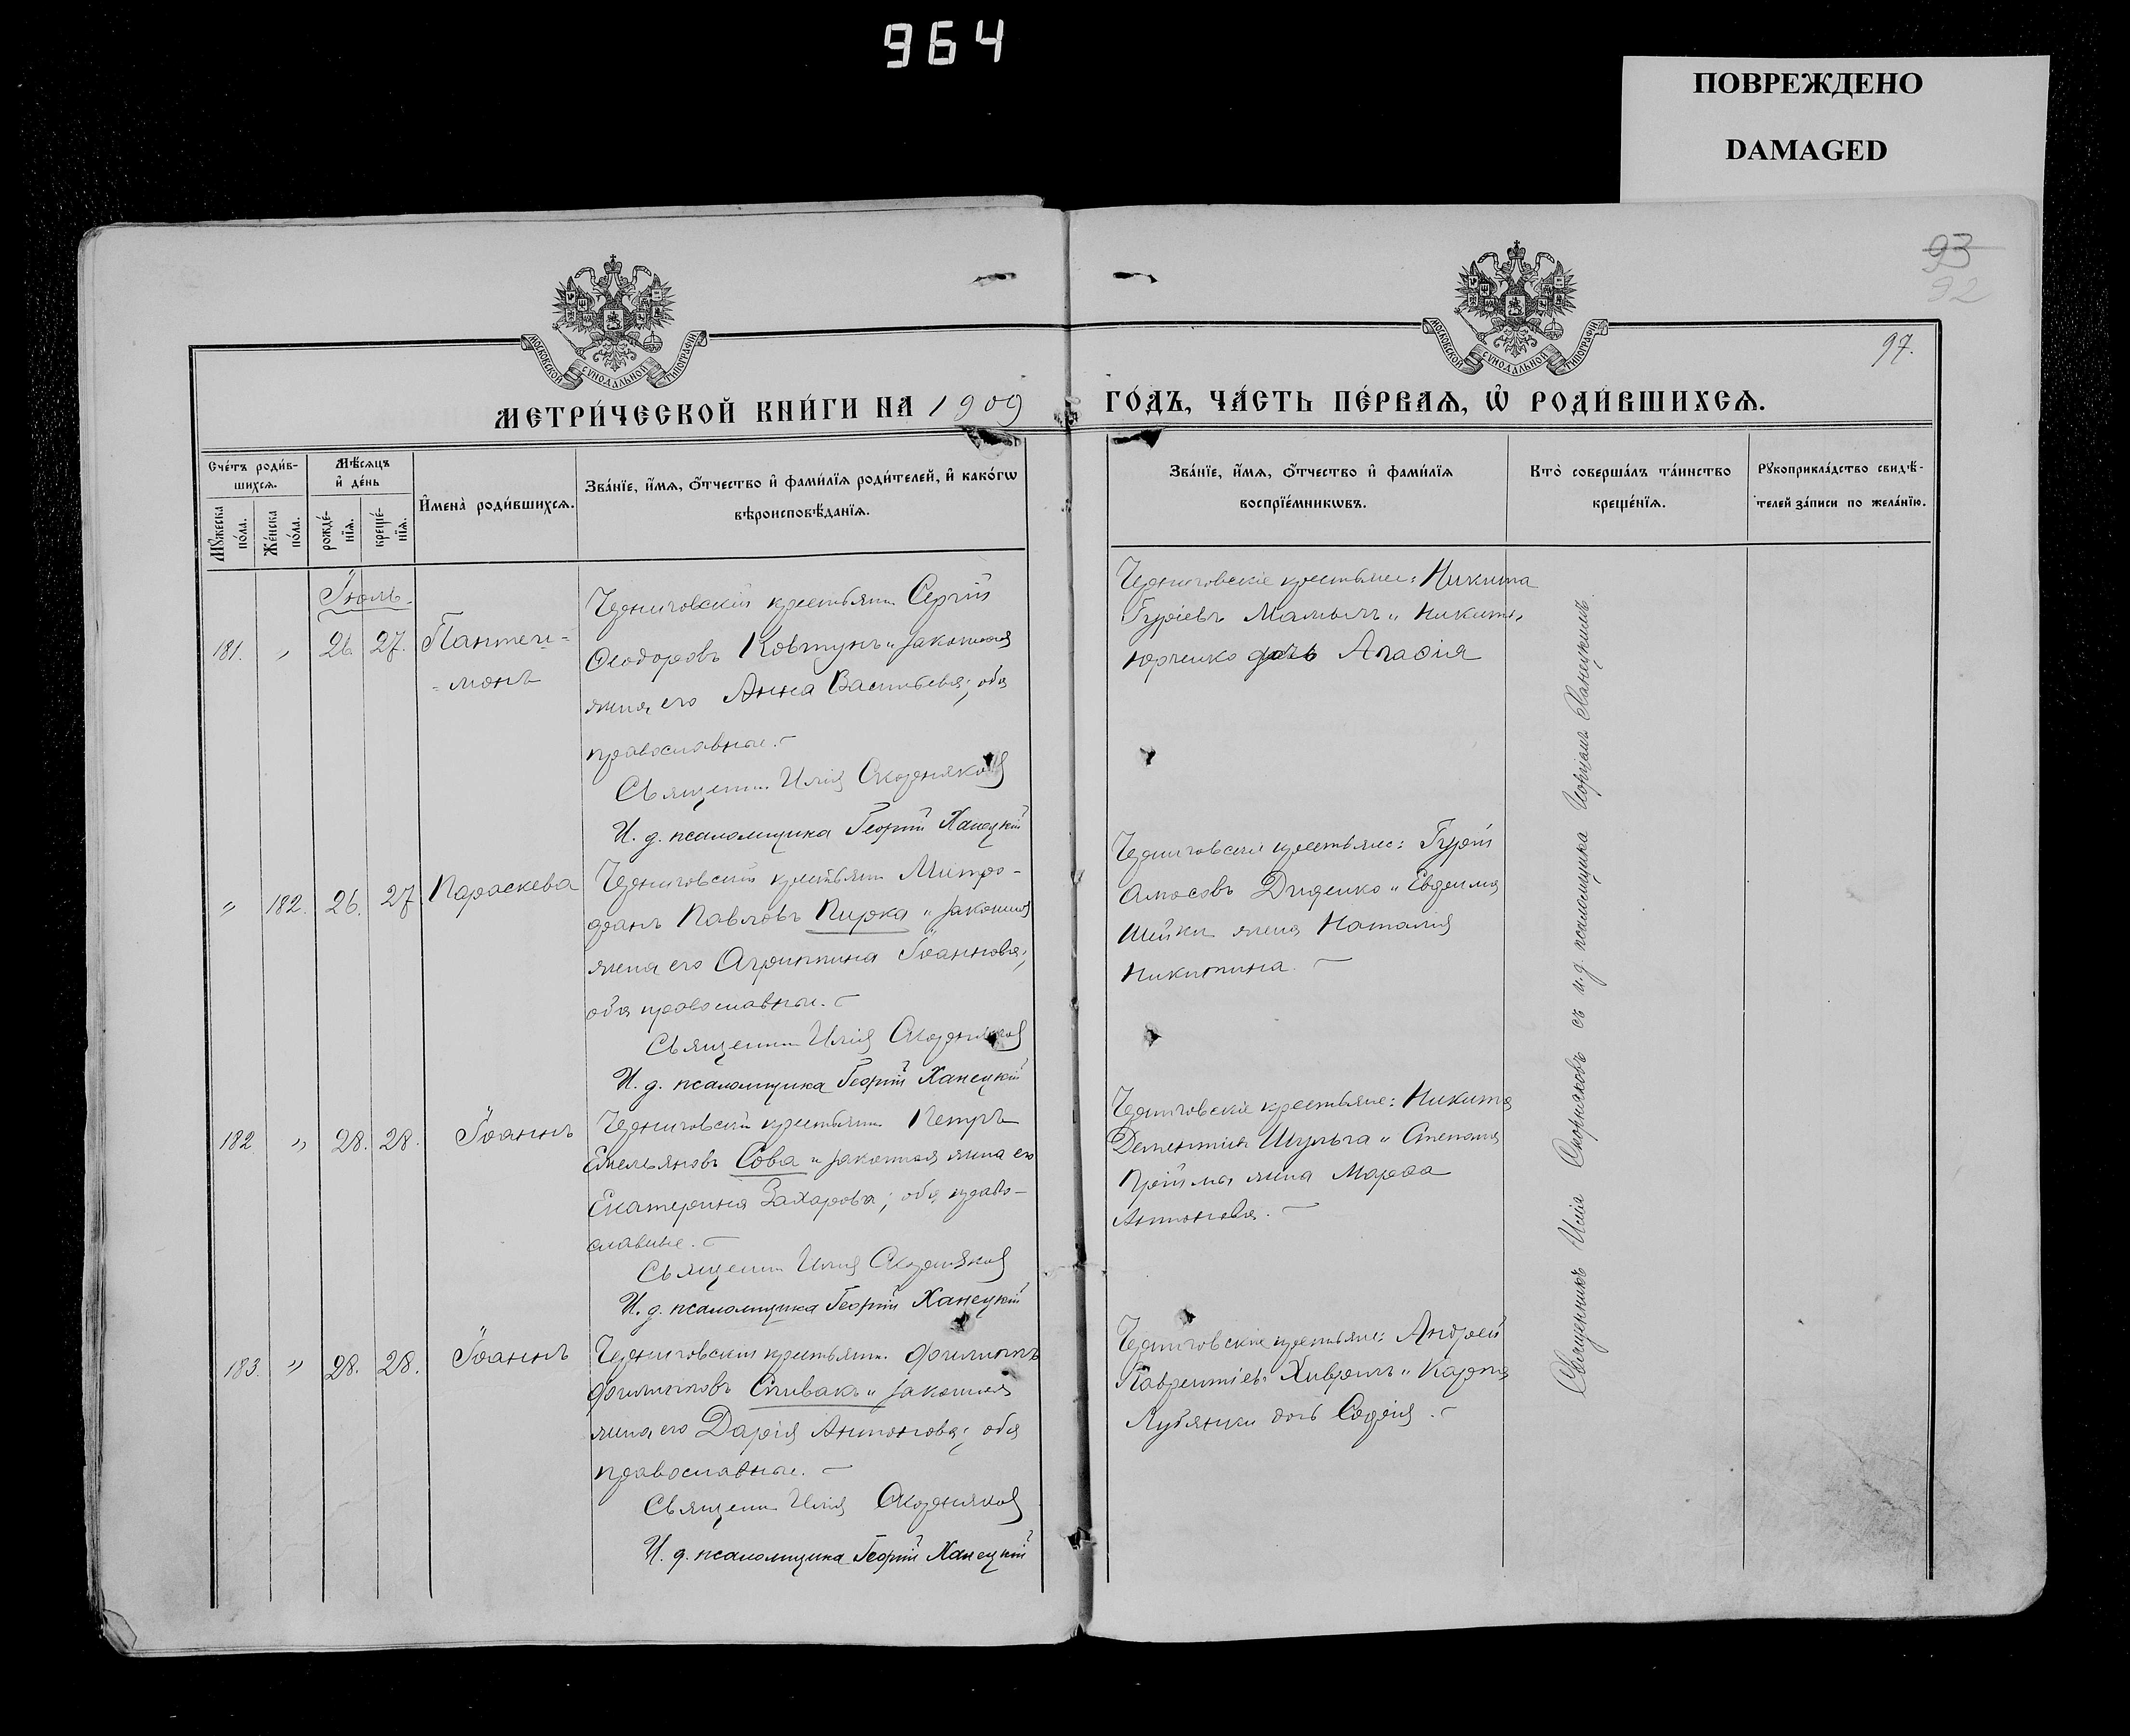 964
ПОВРЕЖДЕНО
DAMAGED
93
92
97.
МОСКОВСКОЙ СѴНОДАЛЬНОЙ ТИПОГРАФІИ
МОСКОВСКОЙ СѴНОДАЛЬНОЙ ТИПОГРАФІИ
МЕТРИ́ЧЕСКОЙ КНИ́ГИ НА 1909 ГО́ДЪ, ЧА́СТЬ ПЕ́РВАѦ, Ѡ҆ РОДИ́ВШИХСѦ.
Сче́тъ роди́в-
шихсѧ.
Мꙋ́жеска по́ла.
Же́нска по́ла.
Мѣ́сѧцъ
и҆ де́нь
рожде́-
нїѧ.
креще́-
нїѧ.
И҆мена̀ роди́вшихсѧ.
Зва́нїе, и҆́мѧ, ѻ҆́тчество и҆ фами́лїѧ роди́телей, и҆ како́гѡ
вѣроисповѣ́данїѧ.
Зва́нїе, и҆́мѧ, ѻ҆́тчество и҆ фами́лїѧ
воспрїе́мникѡвъ.
Кто̀ соверша́лъ та́инство
креще́нїѧ.
Рꙋкоприкла́дство свидѣ́-
телей за́писи по жела́нїю.
Іюль.
181. „ 26. 27. Пантеи-
-монъ
Черниговскій крестьянин Сергій
Ѳеодоровъ Ковтунъ и законная
жена его Анна Васильева; оба
православные.
Священник Илія Скорняковъ
И. д. псаломщика Георгій Ханецкій
Черниговскіе крестьяне: Никита
Гуріевъ Мамычъ и Никиты
Юрченко дочь Агаѳія
„ 182. 26. 27 Параскева
Черниговскій крестьянин Митро-
фанъ Павловъ Пирка и законная
жена его Агриппина Іоаннова;
оба православные.
Священник Илія Скорняковъ
И. д. псаломщика Георгій Ханецкій
Черниговскіе крестьяне: Гурій
Амосовъ Диденко и Евфима
Шейки жена Наталія
Никитина.
182 „ 28. 28. Іоаннъ
Черниговскій крестьянин Петръ
Емельяновъ Сова и законная жена его
Екатерина Захарова; оба право-
славные.
Священник Илія Скорняковъ
И. д. псаломщика Георгій Ханецкій
Черниговскіе крестьяне: Никита
Дементіев Шульга и Степана
Пріймы жена Марѳа
Антонова.
183. „ 28. 28. Іоаннъ
Черниговскій крестьянин Филиппъ
Филипповъ Спивакъ и законная
жена его Дарія Антонова; оба
православные.
Священник Илія Скорняковъ
И. д. псаломщика Георгій Ханецкій
Черниговскіе крестьяне: Андрей
Лаврентіевъ Хивричъ и Карпа
Лубянки дочь Софія.
Священникъ Илія Скорняковъ съ и. д. псаломщика Ханецкимъ.